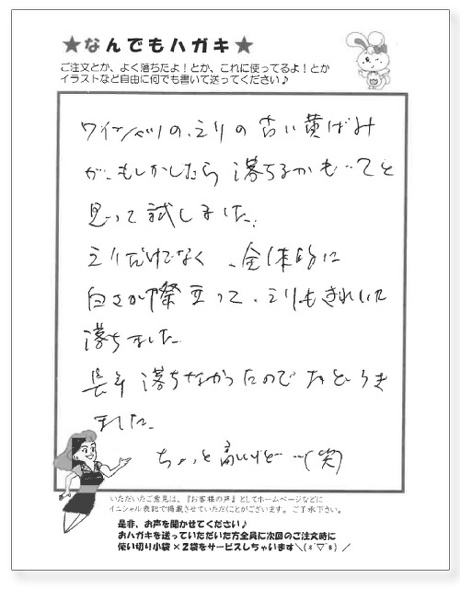 ★なんでもハガキ★
ご注文とか、よく落ちたよ！とか、これに使ってるよ！とか
イラストなど自由に何でも書いて送ってください♪
ワイシャツの、えりの古い黄ばみ
が、もしかしたら落ちるかも…てと
思って試しました。
えりだけでなく、全体的に
白さが際立って、えりもきれいに
落ちました
長年落ちなかったのでおどろき
ました。
ちょっと高いけど…(笑)
いただいたご意見は、『お客様の声』としてホームページなどに
イニシャル表記で掲載させていただくことがございます。ご了承下さい。
是非、お声を聞かせてください♪
おハガキを送っていただいた方全員に次回のご注文時に
使い切り小袋×2袋をサービスしちゃいます＼(*´▽`*)／